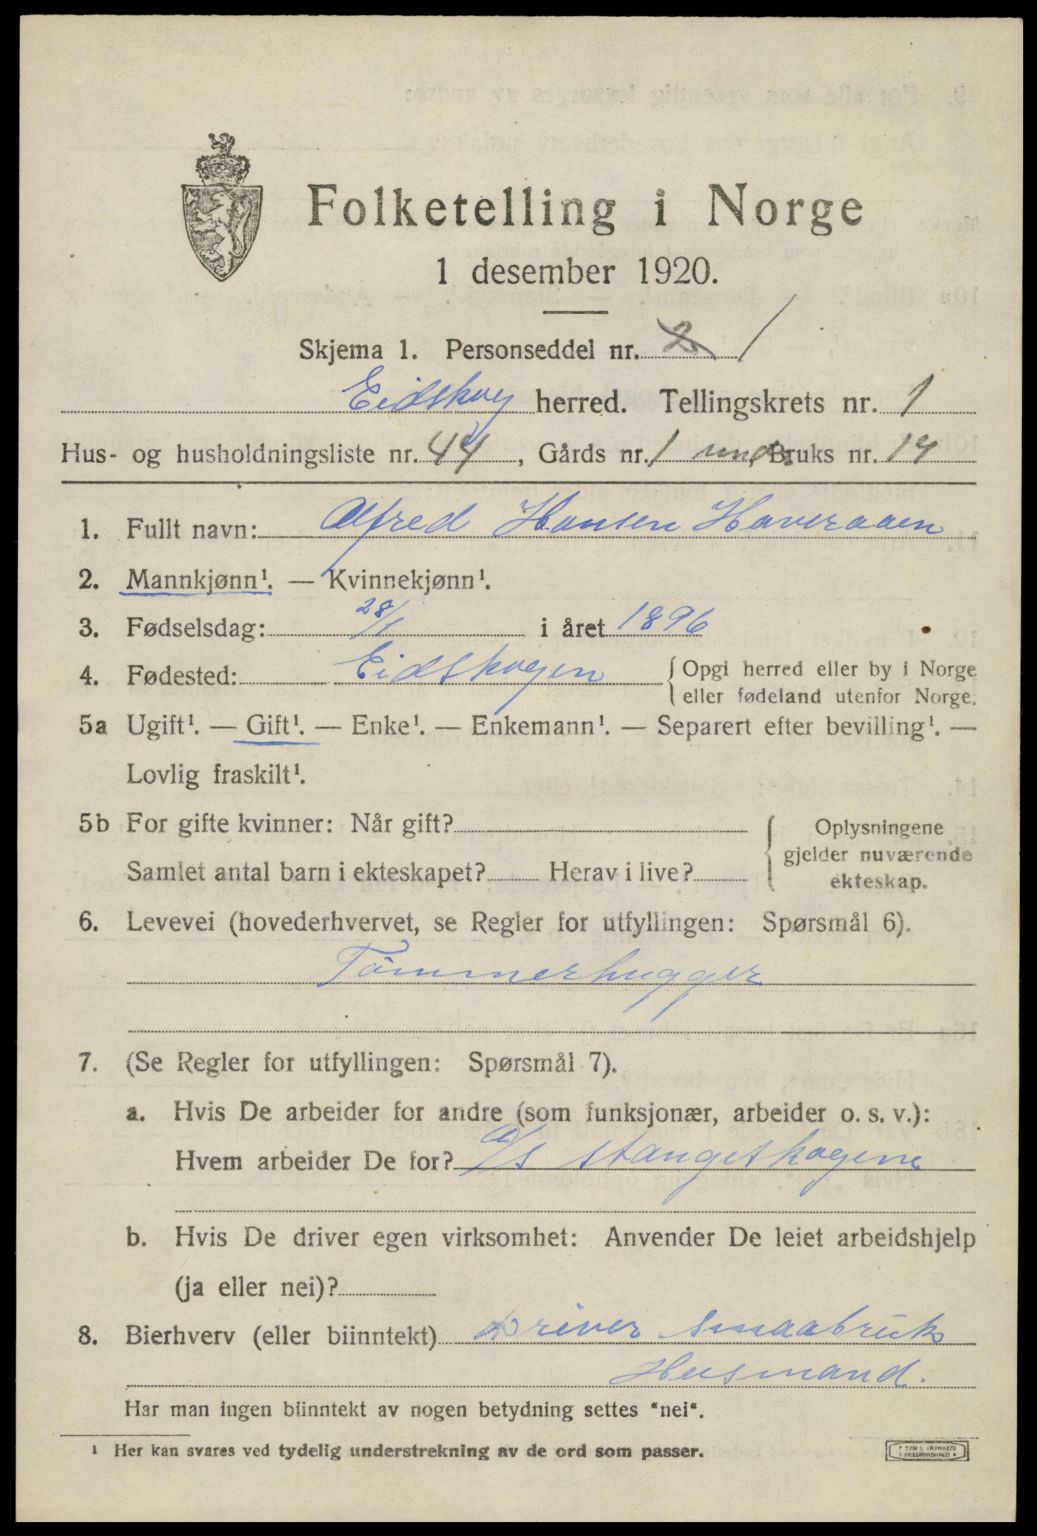 Folketelling i Norge
1 desember 1920.
Skjema 1. Personseddel nr. 2 1
Eidskog herred. Tellingskrets nr. 1
Hus- og husholdningsliste nr. 44, Gårds nr. 1 und. Bruks nr. 14
1. Fullt navn: Alfred Hansen Haveraaen
2. Mannkjønn¹. — Kvinnekjønn¹.
3. Fødselsdag: 28/1 i året 1896
4. Fødested: Eidskogen {Opgi herred eller by i Norge
eller fødeland utenfor Norge.
5a Ugift¹. — Gift¹. — Enke¹. — Enkemann¹. — Separert efter bevilling¹. —
Lovlig fraskilt¹.
5b For gifte kvinner: Når gift? { Oplysningene
gjelder nuværende
Samlet antal barn i ekteskapet? Herav i live?
ekteskap.
6. Levevei (hovederhvervet, se Regler for utfyllingen: Spørsmål 6).
Tømmerhugger
7. (Se Regler for utfyllingen: Spørsmål 7).
a. Hvis De arbeider for andre (som funksjonær, arbeider o. s. v.):
Hvem arbeider De for? A/S Stangeskogene
b. Hvis De driver egen virksomhet: Anvender De leiet arbeidshjelp
(ja eller nei)?
8. Bierhverv (eller biinntekt) Driver Smaabruk
Husmand.
Har man ingen biinntekt av nogen betydning settes "nei".
¹ Her kan svares ved tydelig understrekning av de ord som passer.